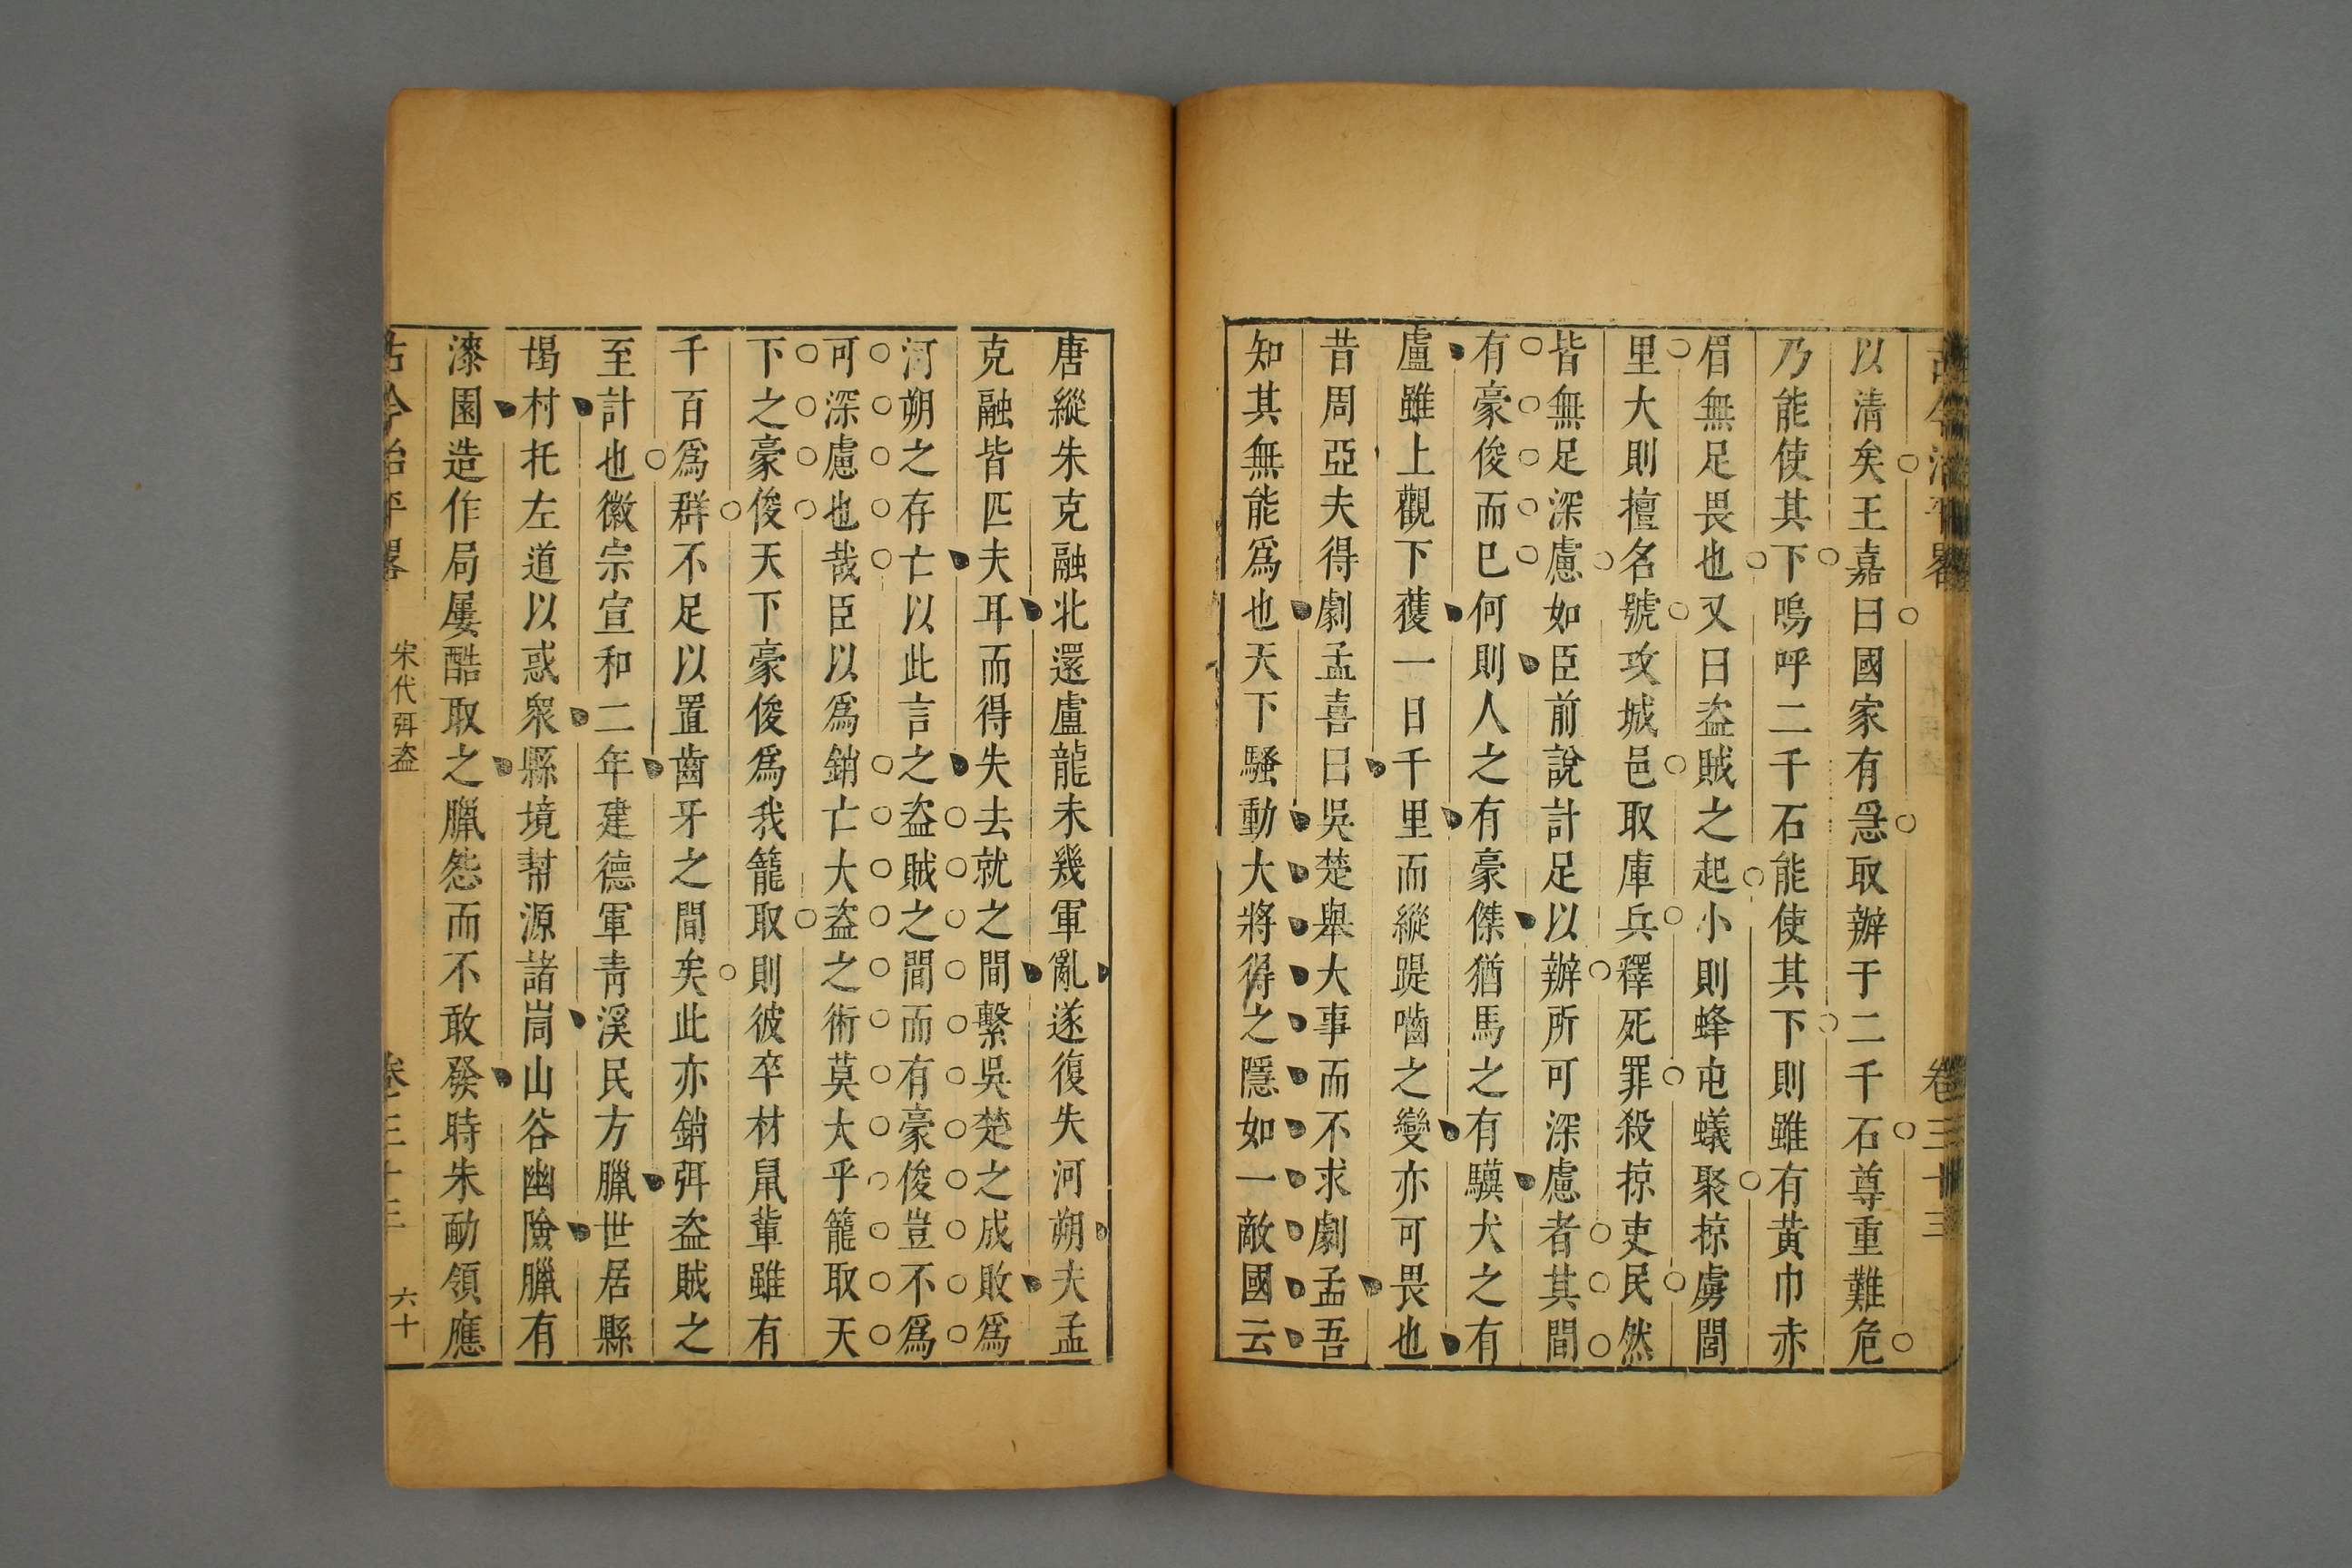 古今治平畧
卷三十三
以清矣王嘉曰國家有急取辦于二千石尊重難危
乃能使其下嗚呼二千石能使其下則雖有黃巾赤
眉無足畏也又曰盗賊之起小則蜂屯蟻聚掠虜閭
里大則擅名號攻城邑取庫兵釋死罪殺掠吏民然
皆無足深慮如臣前說計足以辦所可深慮者其間
有豪俊而已何則人之有豪傑猶馬之有驥犬之有
盧雖上觀下獲一日千里而縱踶嚙之變亦可畏也
昔周亞夫得劇孟喜曰吳楚舉大事而不求劇孟吾
知其無能爲也天下騷動大將得之隱如一敵國云
唐縱朱克融北還盧龍未幾軍亂遂復失河朔夫孟
克融皆匹夫耳而得失去就之間繫吳楚之成敗爲
河朔之存亡以此言之盗賊之間而有豪俊豈不爲
可深慮也哉臣以爲銷亡大盗之術莫大乎籠取天
下之豪俊天下豪俊爲我籠取則彼卒材鼠輩雖有
千百爲群不足以置齒牙之間矣此亦銷弭盗賊之
至計也徽宗宣和二年建德軍青溪民方臘世居縣
堨村托左道以惑衆縣境幇源諸峝山谷幽險臘有
漆園造作局屢酷取之臘怨而不敢發時朱勔領應
古今治平畧
宋代弭盗
卷三十三
六十